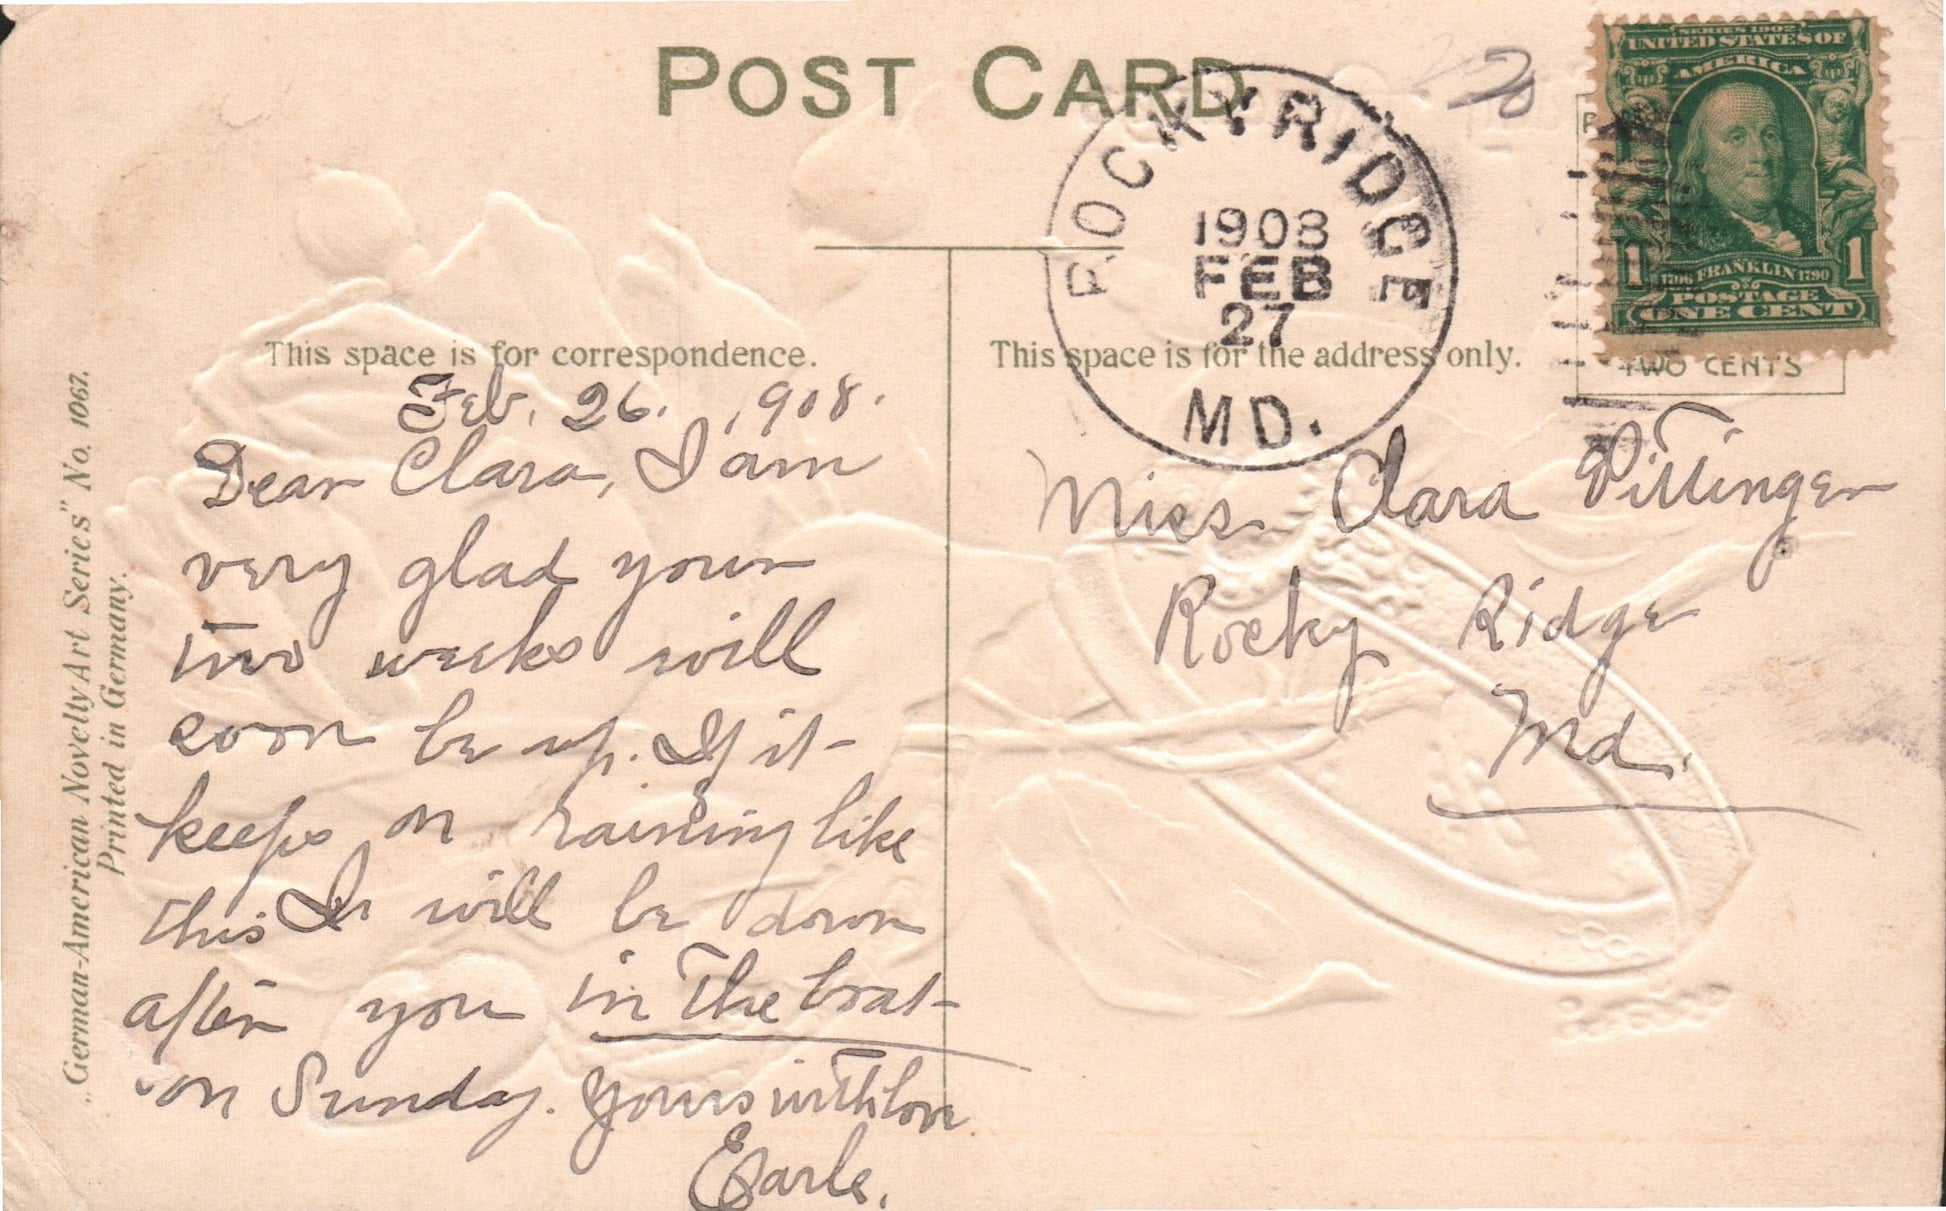 POST CARD
20
ROCKYRIDGE
1908
FEB
27
MD.
SERIES 1902
UNITED STATES OF
AMERICA
1 1
1706 FRANKLIN 1790
POSTAGE
ONE CENT
TWO CENTS
This space is for correspondence.
This space is for the address only.
Feb. 26. , 1908.
Dear Clara, I am
very glad your
two weeks will
soon be up. If it
keeps on raining like
this I will be down
after you in the boat
on Sunday. Yours with love
Earle.
Miss Clara Pittinger
Rocky Ridge
Md.
„German-American Novelty Art Series" No. 1067.
Printed in Germany.